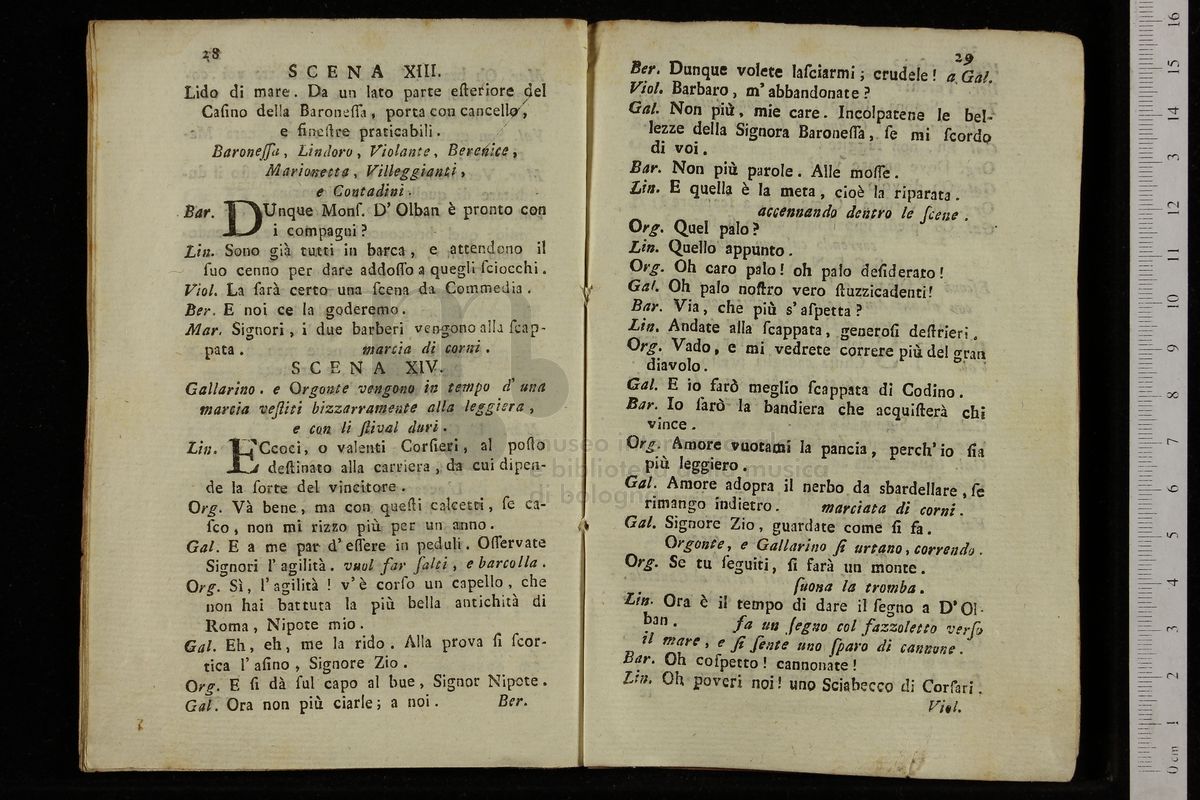 28
SCENA XIII.
Lido di mare. Da un lato parte eſteriore del
Caſino della Baroneſſa, porta con cancello,
e fineſtre praticabili.
Baroneſſa, Lindoro, Violante, Berenice,
Marionetta, Villeggianti,
e Contadini.
Bar. DUnque Monſ. D'Olban è pronto con
i compagni?
Lin. Sono già tutti in barca, e attendono il
ſuo cenno per dare addoſſo a quegli ſciocchi.
Viol. La ſarà certo una ſcena da Commedia.
Ber. E noi ce la goderemo.
Mar. Signori, i due barberi vengono alla ſcap-
pata. marcia di corni.
SCENA XIV.
Gallarino. e Orgonte vengono in tempo d'una
marcia veſtiti bizzarramente alla leggiera,
e con li ſtival duri.
Lin. ECcoci, o valenti Corſieri, al poſto
deſtinato alla carriera, da cui dipen-
de la ſorte del vincitore.
Org. Và bene, ma con queſti calcetti, ſe ca-
ſco, non mi rizzo più per un anno.
Gal. E a me par d'eſſere in peduli. Oſſervate
Signori l'agilità. vuol far ſalti, e barcolla.
Org. Sì, l'agilità! v'è corſo un capello, che
non hai battuta la più bella antichità di
Roma, Nipote mio.
Gal. Eh, eh, me la rido. Alla prova ſi ſcor-
tica l'aſino, Signore Zio.
Org. E ſi dà ſul capo al bue, Signor Nipote.
Gal. Ora non più ciarle; a noi. Ber.
29
Ber. Dunque volete laſciarmi; crudele! a Gal.
Viol. Barbaro, m'abbandonate?
Gal. Non più, mie care. Incolpatene le bel-
lezze della Signora Baroneſſa, ſe mi ſcordo
di voi.
Bar. Non più parole. Alle moſſe.
Lin. E quella è la meta, cioè la riparata.
accennando dentro le ſcene.
Org. Quel palo?
Lin. Quello appunto.
Org. Oh caro palo! oh palo deſiderato!
Gal. Oh palo noſtro vero ſtuzzicadenti!
Bar. Via, che più s'aſpetta?
Lin. Andate alla ſcappata, generoſi deſtrieri.
Org. Vado, e mi vedrete correre più del gran
diavolo.
Gal. E io farò meglio ſcappata di Codino.
Bar. Io ſarò la bandiera che acquiſterà chi
vince.
Org. Amore vuotami la pancia, perch'io ſia
più leggiero.
Gal. Amore adopra il nerbo da sbardellare, ſe
rimango indietro. marciata di corni.
Gal. Signore Zio, guardate come ſi fa.
Orgonte, e Gallarino ſi urtano, correndo.
Org. Se tu ſeguiti, ſi farà un monte.
ſuona la tromba.
Lin. Ora è il tempo di dare il ſegno a D'Ol-
ban. fa un ſegno col fazzoletto verſo
il mare, e ſi ſente uno ſparo di cannone.
Bar. Oh coſpetto! cannonate!
Lin. Oh poveri noi! uno Sciabecco di Corſari.
Viol.
museo
biblioteca della musica
di bologna
0 cm 1 2 3 4 5 6 7 8 9 10 11 12 13 14 15 16